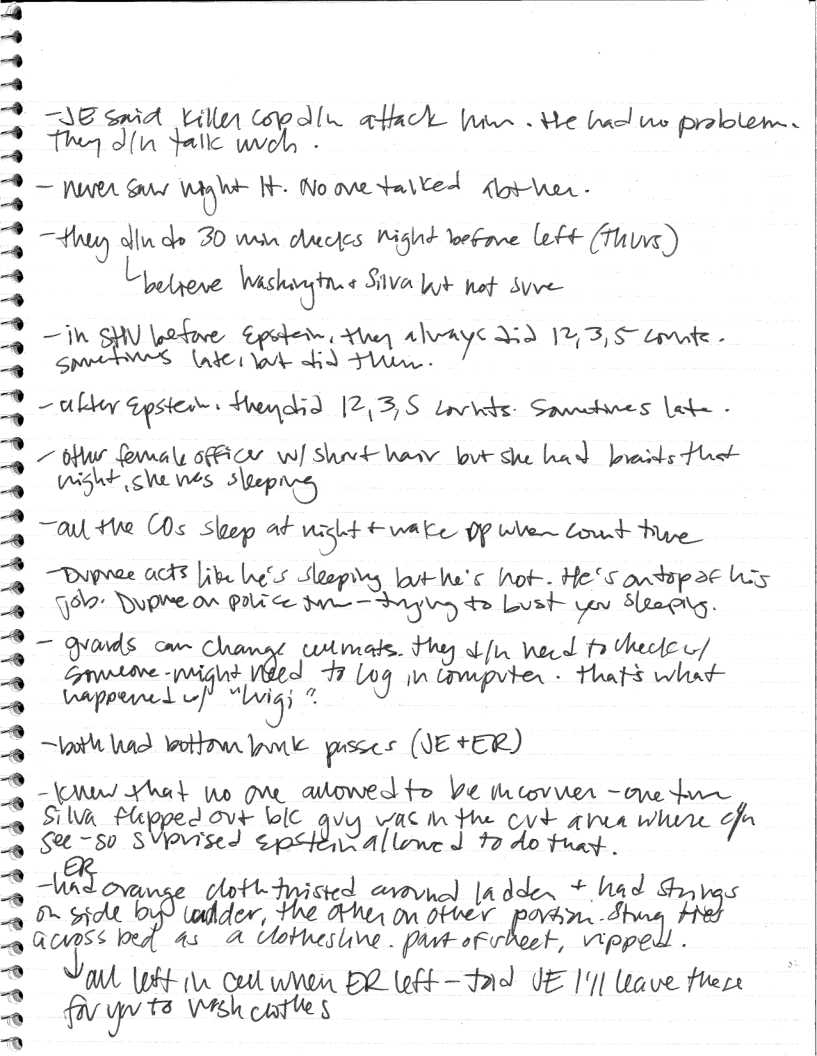 -JE said killer cop d/n attack him. He had no problem.
They d/n talk much.
- never saw night Lt. No one talked abt her.
- they d/n do 30 min checks night before left (Thurs)
believe Washington + Silva but not sure
- in SHU before Epstein, they always did 12, 3, 5 counts.
sometimes late, but did them.
- after Epstein, they did 12, 3, 5 counts. Sometimes late.
- other female officer w/ short hair but she had braids that
night, she was sleeping
- all the COs sleep at night + wake up when count time
- Dupree acts like he's sleeping but he's not. He's on top of his
job. Dupree on police time - trying to bust you sleeping.
- guards can change cellmates. they d/n need to check w/
someone - might need to log in computer. that's what
happened w/ "Luigi".
- both had bottom bunk passes (JE + ER)
- knew that no one allowed to be in corner - one time
Silva flipped out b/c guy was in the cut area where c/n
see - so surprised Epstein allowed to do that.
ER
- had orange cloth twisted around ladder + had strings
on side by ladder, the other on other portion. String ties
across bed as a clothesline. part of sheet, ripped.
all left in cell when ER left - told JE I'll leave these
for you to wash clothes